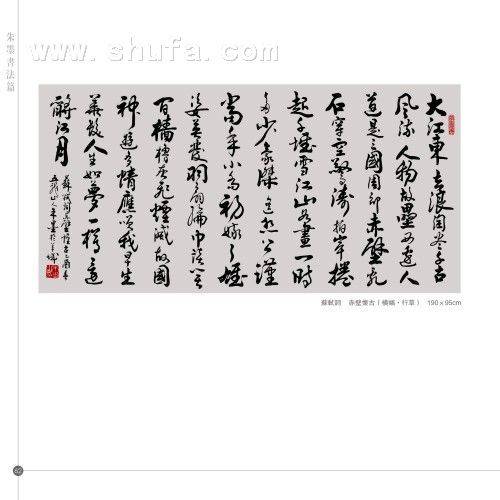 www.shufa.com
朱墨書法篇
大江東去浪淘尽千古
風流人物故壘西邊人
道是三國周郎赤壁亂
石穿空驚濤拍岸捲
起千堆雪江山如畫一時
多少豪傑遙想公瑾
當年小喬初嫁了雄
姿英發羽扇綸巾談笑
百檣櫓灰飛煙滅故國
神遊多情應笑我早生
華髮人生如夢一樽還
酹江月
蘇軾詞赤壁懷古乙酉春
蘇軾詞 赤壁懷古（橫幅·行草） 190 x 95cm
82